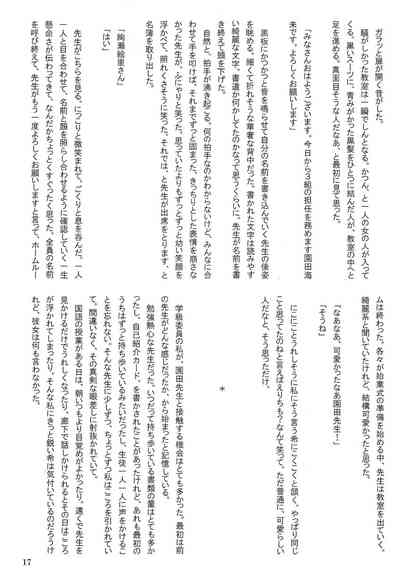 ガラッと扉が開く音がした。
騒がしかった教室は一瞬でしんとなる。かつん、と一人の女の人が入って
くる。黒いスーツに、青みがかった黒髪をひとつに結んだ人が、教室の中へと
足を進める。真面目そうなんだなあ、と最初に見て思った。
「みなさんおはようございます。今日から３組の担任を務めます園田海
未です。よろしくお願いします」
黒板にかつかつと音を鳴らせて自分の名前を書き込んでいく先生の後姿
を眺める。細くて折れそうな華奢な背中だった。書かれた文字は読みやす
い綺麗な文字。書道か何かしてたのかなって思うくらいに。先生が名前を書
き終えて頭を下げた。
自然と、拍手が湧き起こる。何の拍手なのかわからないけど、みんなに合
わせて手を叩けば、それまでずっと固まった、きっちりとした表情を崩さな
かった先生が、ふにゃりと笑った。思っていたよりもずっとずっと幼い笑顔を
浮かべて、照れくさそうに笑った。それでは、と先生が出席をとります、と
名簿を取り出した。
「絢瀬絵里さん」
「はい」
先生がこちらを見る。にっこりと微笑まれて、ごくりと息を呑んだ。一人
一人と目を合わせて、名前と顔を照らし合わせるように確認していく一生
懸命さが伝わってきて、なんだかちょっとくすぐったく思った。全員の名前
を呼び終えて、先生がもう一度よろしくお願いしますと言って、ホームルー
ムは終わった。各々が始業式の準備を始める中、先生は教室を出ていく。
綺麗系と聞いていたけれど、結構可愛かったと思った。
「なあなあ、可愛かったなあ園田先生ー」
「そうね」
にこにことうれしそうに私にそう言う希にこくこくと頷く。やっぱり同じ
こと思ってたのねと言えばえりちも？なんて笑って、ただ普通に、可愛らしい
人だなと、そう思っただけ。
＊
学級委員の私が、園田先生と接触する機会はとても多かった。最初は前
の先生がどんな感じだったか、から始まったと記憶している。
勉強熱心な先生だった。いつだって持ち歩いている書類の量はとても多か
ったし、自己紹介カード、を書かされたことがあったけれど、あれも最初の
うちはずっと持ち歩いているみたいだったし、生徒一人一人に声をかけるこ
とを忘れない。そんな先生に少しずつ、ちょっとずつ私はこころを引かれてい
て。間違いなく、その真剣な眼差しに射抜かれていて。
国語の授業がある日は、朝いつもより目覚めがよかったり。遠くで先生を
見かけるだけでうれしくなったり、廊下で話しかけられるとその日はこころ
が浮かれてしまったり。そんな私にきっと鋭い希は気付いているのだろうけ
れど、彼女は何も言わなかった。
17